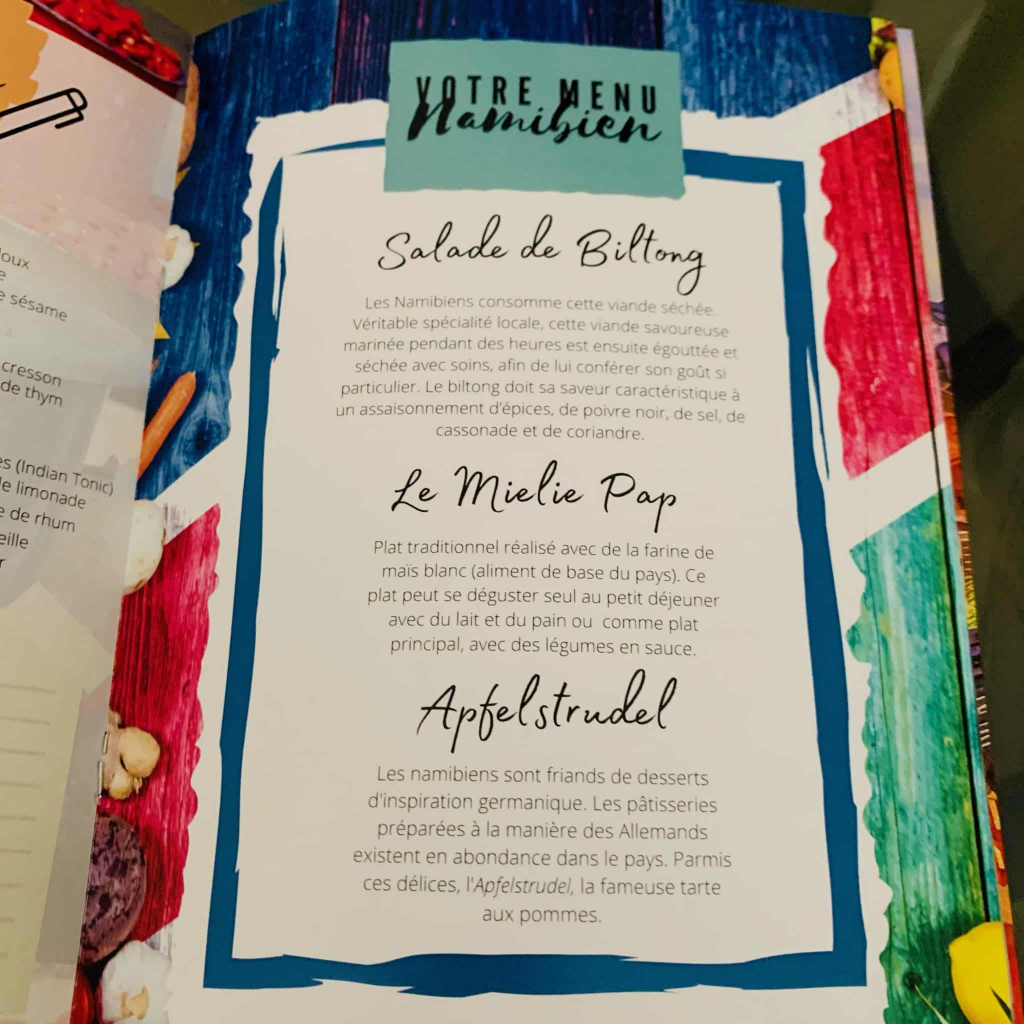 loux
e sésame
cresson
de thym
(Indian Tonic)
limonade
de rhum
VOTRE MENU
Namibien
Salade de Biltong
Les Namibiens consomme cette viande séchée.
Véritable spécialité locale, cette viande savoureuse
marinée pendant des heures est ensuite égouttée et
séchée avec soins, afin de lui conférer son goût si
particulier. Le biltong doit sa saveur caractéristique à
un assaisonnement d'épices, de poivre noir, de sel, de
cassonade et de coriandre.
Le Mielie Pap
Plat traditionnel réalisé avec de la farine de
maïs blanc (aliment de base du pays). Ce
plat peut se déguster seul au petit déjeuner
avec du lait et du pain ou comme plat
principal, avec des légumes en sauce.
Apfelstrudel
Les namibiens sont friands de desserts
d'inspiration germanique. Les pâtisseries
préparées à la manière des Allemands
existent en abondance dans le pays. Parmis
ces délices, l'Apfelstrudel, la fameuse tarte
aux pommes.